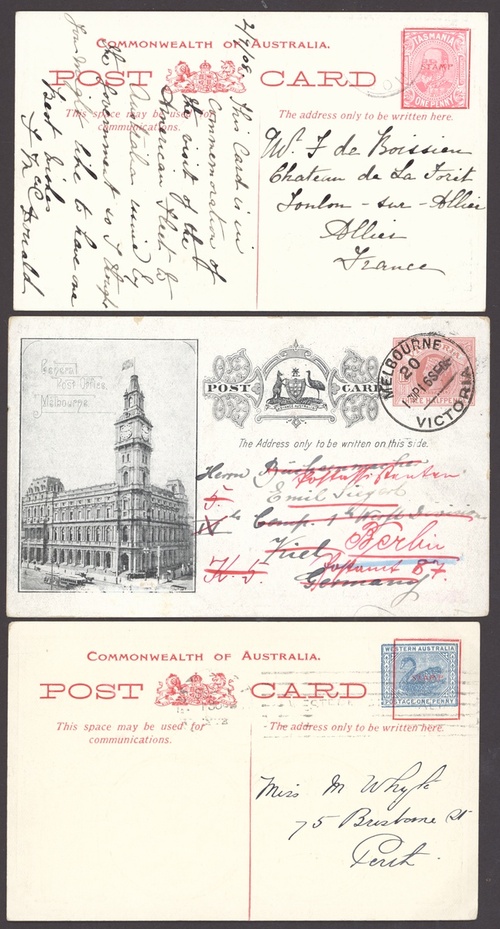 COMMONWEALTH OF AUSTRALIA.
POST CARD
TASMANIA
STAMP
ONE PENNY
This space may be used for
communications.
The address only to be written here.
2/9/08
This Card is in
Commemoration of
the visit of the
American Fleet to
Australia issued by
the Government so I thought
you might like to have one
Best wishes
J McDonald
Mr. F de Boissieu
Chateau de La Forit
Toulon - sur - Allier
Allier
France
General
Post Office,
Melbourne
POST CARD
MELBOURNE
20
VICTORIA
HALFPENNY
The Address only to be written on this side.
Herrn
Emil Siegert
Comp. 1te
Kiel
Berlin
Postamt 87.
Germany
COMMONWEALTH OF AUSTRALIA.
POST CARD
WESTERN AUSTRALIA
POSTAGE ONE PENNY
This space may be used for
communications.
The address only to be written here.
Miss M Whyte
75 Brisbane St
Perth.